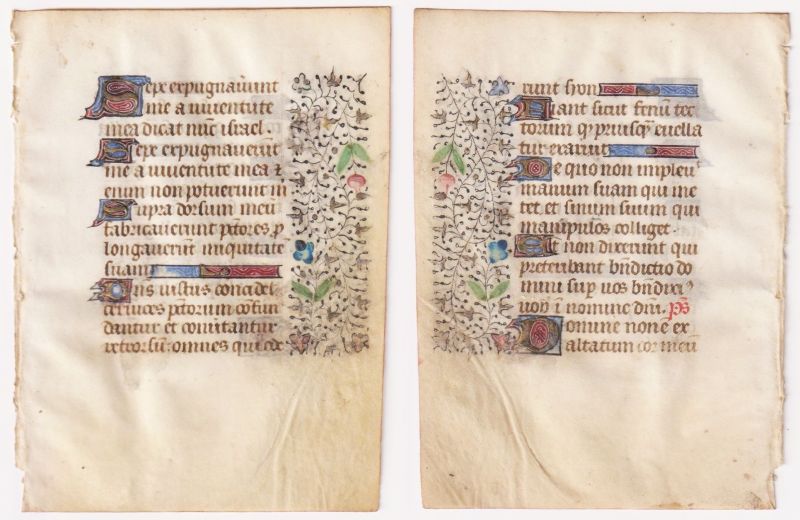 Sepe expugnauerunt
me a iuuentute
mea dicat nunc israel.
Sepe expugnauerūt
me a iuuentute mea et
enim non potuerunt m̄
Supra dorsum meū
fabricauerunt pctores p
longauerunt iniquitatē
suam
Dn̄s iustus concidet
ceruices pctorum cōfun
dantur et conūtantur
retrorsū: omnes qui ode
runt syon
Fiant sicut fenū tec
torum qp priusqp euella
tur exaruit
De quo non impleu̅
manum suam qui me
tet et sinum suum qui
manipulos colliget.
Et non dixerunt qui
preteribant bn̄dictio do
mini sup uos bn̄dixi
uob̄ ī nomine dn̄i. p̄s
Domine non ex
altatum cor meū